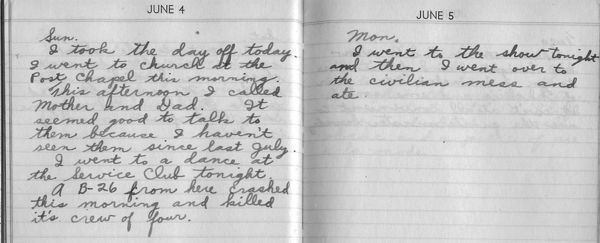 JUNE 4
Sun.
I took the day off today.
I went to church at the
Post Chapel this morning.
This afternoon I called
Mother and Dad. It
seemed good to talk to
them because I haven't
seen them since last July.
I went to a dance at
the Service Club tonight.
A B-26 from here crashed
this morning and killed
it's crew of four.
JUNE 5
Mon.
I went to the show tonight
and then I went over to
the civilian mess and
ate.